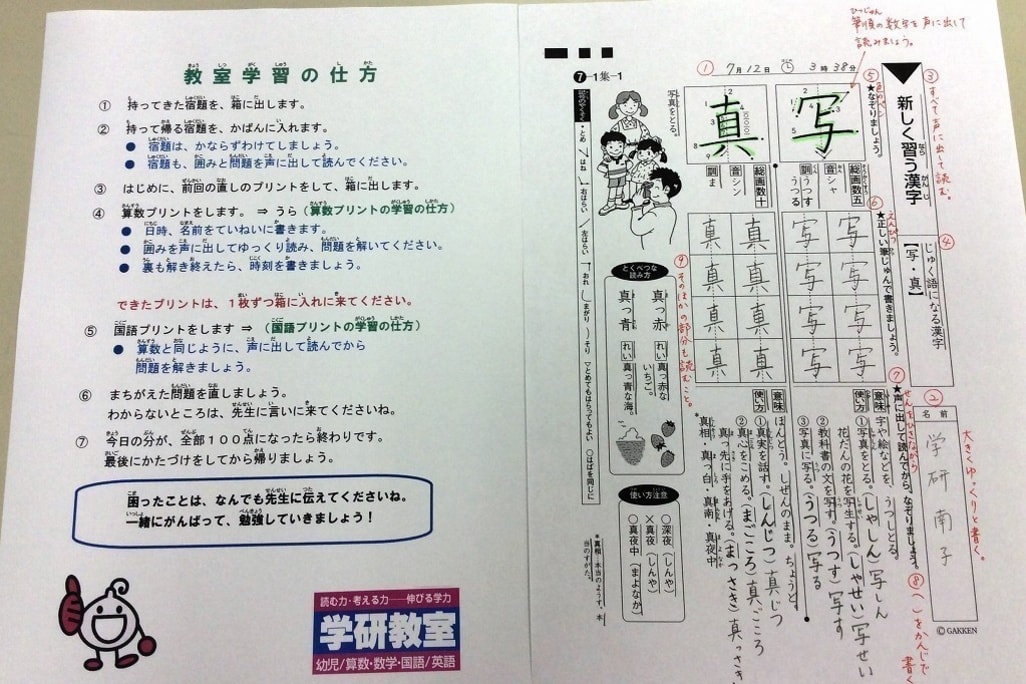 教室学習の仕方
① 持ってきた宿題を、箱に出します。
② 持って帰る宿題を、かばんに入れます。
● 宿題は、かならずわけてしましょう。
● 宿題も、囲みと問題を声に出して読んでください。
③ はじめに、前回の直しのプリントをして、箱に出します。
④ 算数プリントをします。 ⇒ うら(算数プリントの学習の仕方)
● 日時、名前をていねいに書きます。
● 囲みを声に出してゆっくり読み、問題を解いてください。
● 裏も解き終えたら、時刻を書きましょう。
できたプリントは、1枚ずつ箱に入れに来てください。
⑤ 国語プリントをします ⇒ (国語プリントの学習の仕方)
● 算数と同じように、声に出して読んでから
問題を解きましょう。
⑥ まちがえた問題を直しましょう。
わからないところは、先生に言いに来てくださいね。
⑦ 今日の分が、全部100点になったら終わりです。
最後にかたづけをしてから帰りましょう。
困ったことは、なんでも先生に伝えてくださいね。
一緒にがんばって、勉強していきましょう!
読む力・考える力――伸びる学力
学研教室
幼児/算数・数学・国語/英語
筆順の数字を声に出して
読みましょう。
❼-1集-1
① 7月12日 3時38分
③すべて声に出して読む。
新しく習う漢字
④
じゅく語になる漢字
【写・真】
②
名前
学研南子
大きくゆっくりと書く。
©GAKKEN
⑤
★なぞりましょう。
写
総画数五
音シャ
訓うつす
うつる
真
総画数十
音シン
訓ま
写真をとる。
⑥
★正しい筆じゅんで書きましょう。
写 写 写 写
写 写 写 写
真 真 真 真
真 真 真 真
⑦
★声に出して読んでから、なぞりましょう。
⑧( )をかんじで
書く
意味 字や絵などを、うつしとる。
使い方 ①写真をとる。(しゃしん)写しん
花だんの花を写生する。(しゃせい)写せい
②教科書の文を写す。(うつす)写す
③写真に写る。(うつる)写る
意味 ほんとう。しぜんのまま。ちょうど。
使い方 ①真実を話す。(しんじつ)真じつ
②真心をこめる。(まごころ)真ごころ
真っ先に手をあげる。(まっさき)真っさき
*真相 真っ白・真南・真夜中
⑨そのほかの部分も読むこと。
とくべつな
読み方
真っ赤 れい 真っ赤な
いちご。
真っ青 れい 真っ青な海。
使い方注意
○深夜(しんや)
×真夜(しんや)
○真夜中(まよなか)
*真相…本当のようす。本
当のすがた。